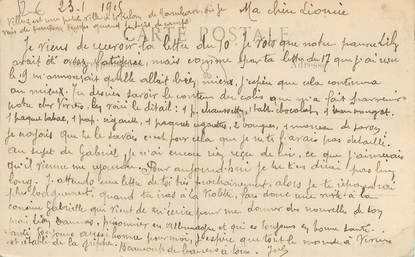 23-1-1915 Ma chère Léonie
CARTE POSTALE
Je viens de recevoir ta lettre du 10. Je vois que notre pauvre Lily
avait été assez fatiguée, mais comme par ta lettre du 17 que j'ai reçue
il y m'annonçait qu'elle allait bien mieux, j'espère que cela continuera
au mieux. Tu désires savoir le contenu des colis que m'a fait parvenir
notre cher Victor, les voici le détail : 1 p. chaussettes, 1 tabl. chocolat, 1
1 paquet tabac, 1 cigares, 1 paquet cigarettes, 2 bougies, 1 morceau de savon
je croyais que tu le savais c'est pour cela que je ne t'avais pas détaillé.
Au sujet de Gabriel, je n'ai encore rien reçu de lui, ce que j'aimerais
qu'il vienne me rejoindre. Pour aujourd'hui je ne t'en dirai pas plus
long. J'attends une lettre de toi très prochainement, alors je te répondrai
plus longuement, quand tu iras à la Violette, fais donc une visite à la
cousine Gabrielle qui vient de m'écrire pour me donner des nouvelles de son
mari Léon, prisonnier en Allemagne et qui est toujours en bonne santé.
Santé toujours aussi bonne pour moi, j'espère que tout le monde à
est rétabli de la grippe. Beaucoup de baisers à tous.